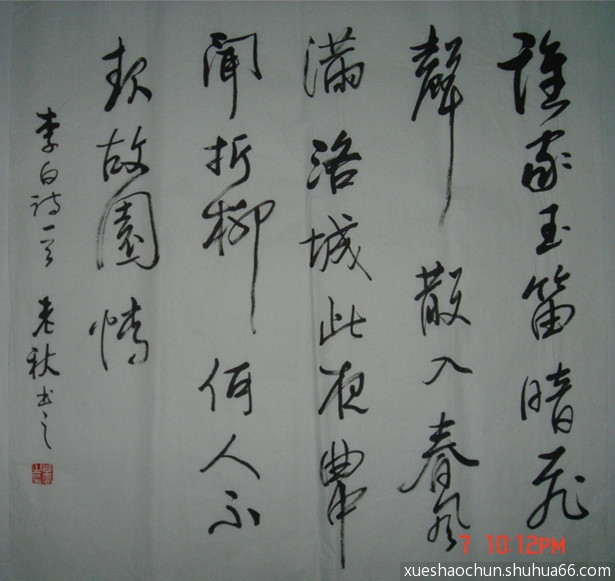 誰家玉笛暗飛
聲散入春風
滿洛城此夜曲中
聞折柳何人不
起故園情
李白詩一首 老秋書之
7 10:12PM
xueshaochun.shuhua66.com